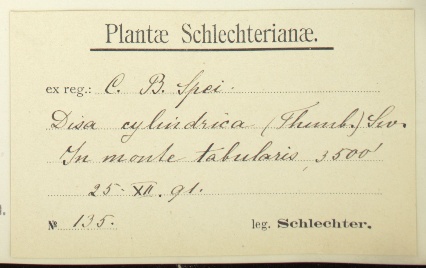 Plantæ Schlechterianæ.
ex reg.: C. B. Spei.
Disa cylindrica (Thunb.) Sw.
In monte tabularis, 3500'
25. XII. 91.
№ 135. leg. Schlechter.